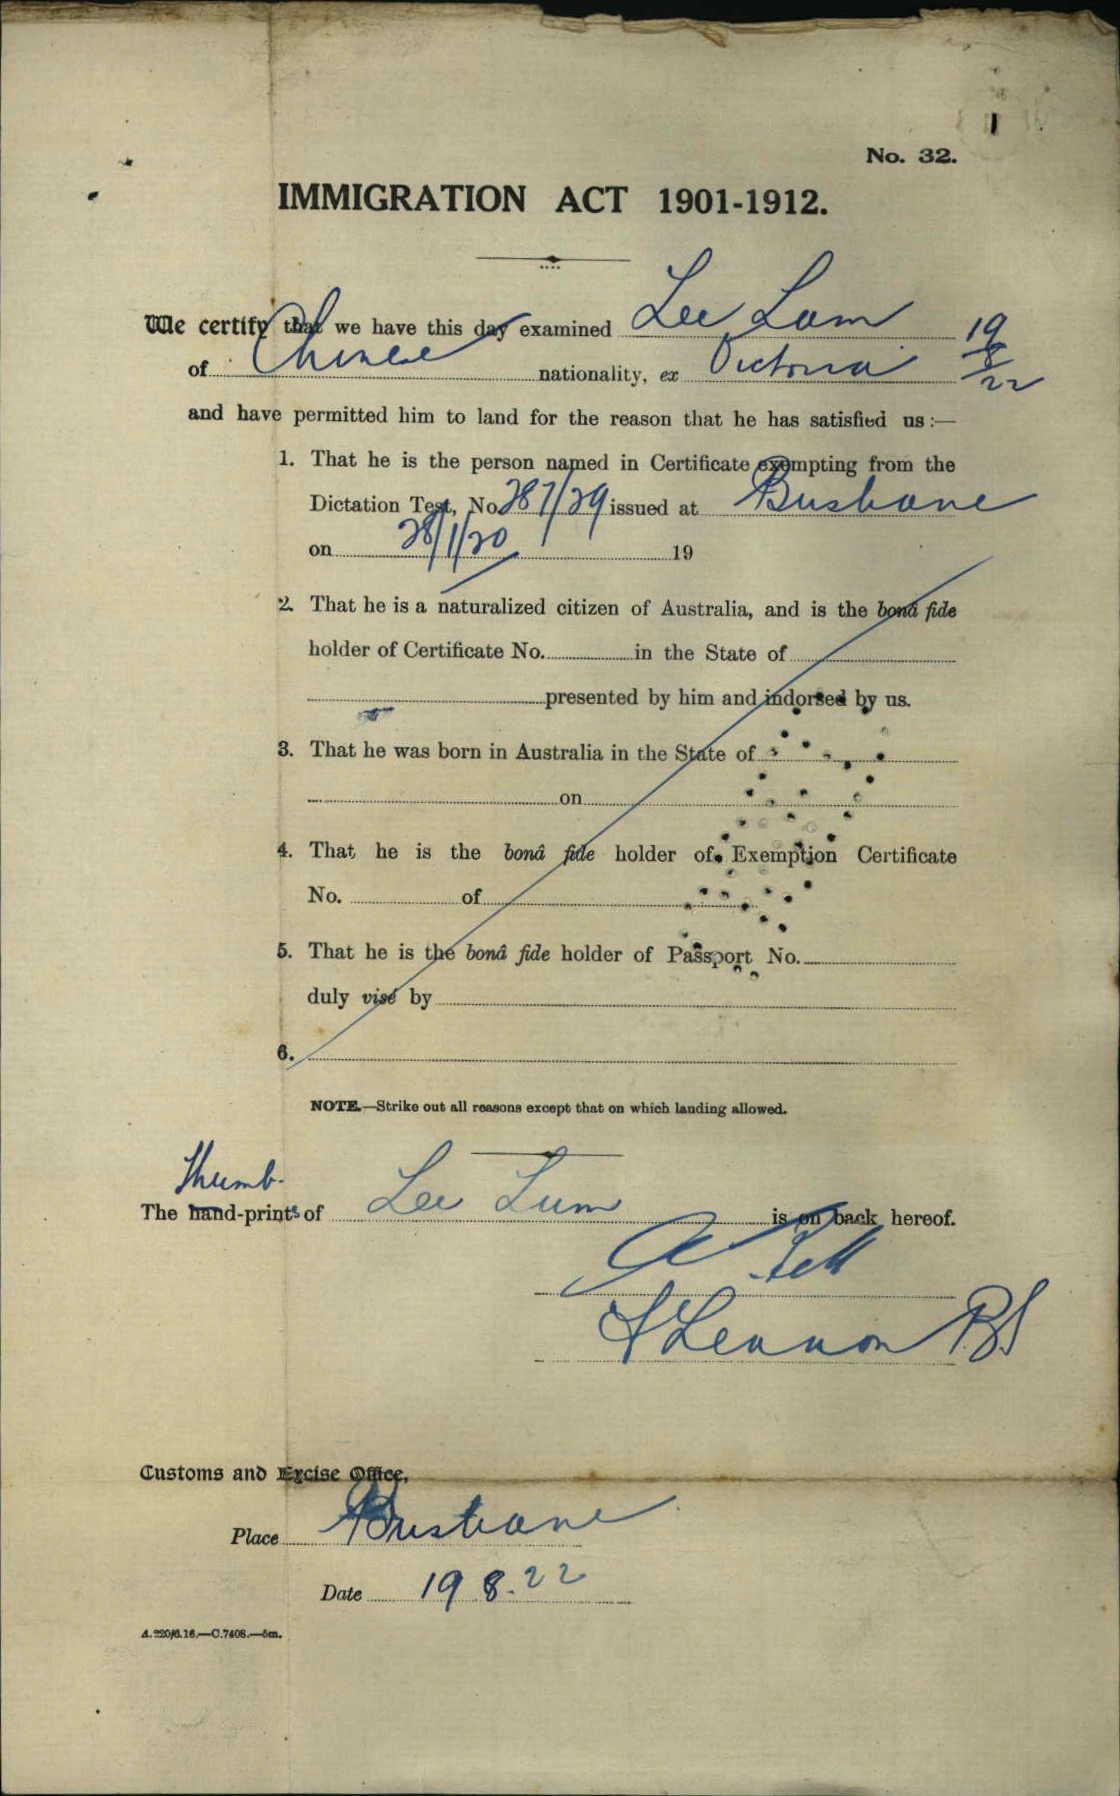 1
No. 32.
IMMIGRATION ACT 1901-1912.
We certify that we have this day examined Lee Lum 19
of Chinese nationality, ex Victoria 8/22
and have permitted him to land for the reason that he has satisfied us:—
1. That he is the person named in Certificate exempting from the
Dictation Test, No. 287/29 issued at Brisbane
on 28/1/20 19
2. That he is a naturalized citizen of Australia, and is the bonâ fide
holder of Certificate No. in the State of
presented by him and indorsed by us.
3. That he was born in Australia in the State of
on
4. That he is the bonâ fide holder of Exemption Certificate
No. of
5. That he is the bonâ fide holder of Passport No.
duly visé by
6.
NOTE.—Strike out all reasons except that on which landing allowed.
Thumb-
The hand-prints of Lee Lum is on back hereof.
A Bell
Lennon
Customs and Excise Office,
Place Brisbane
Date 19.8.22
A.220/6.16.—C.7408.—5m.